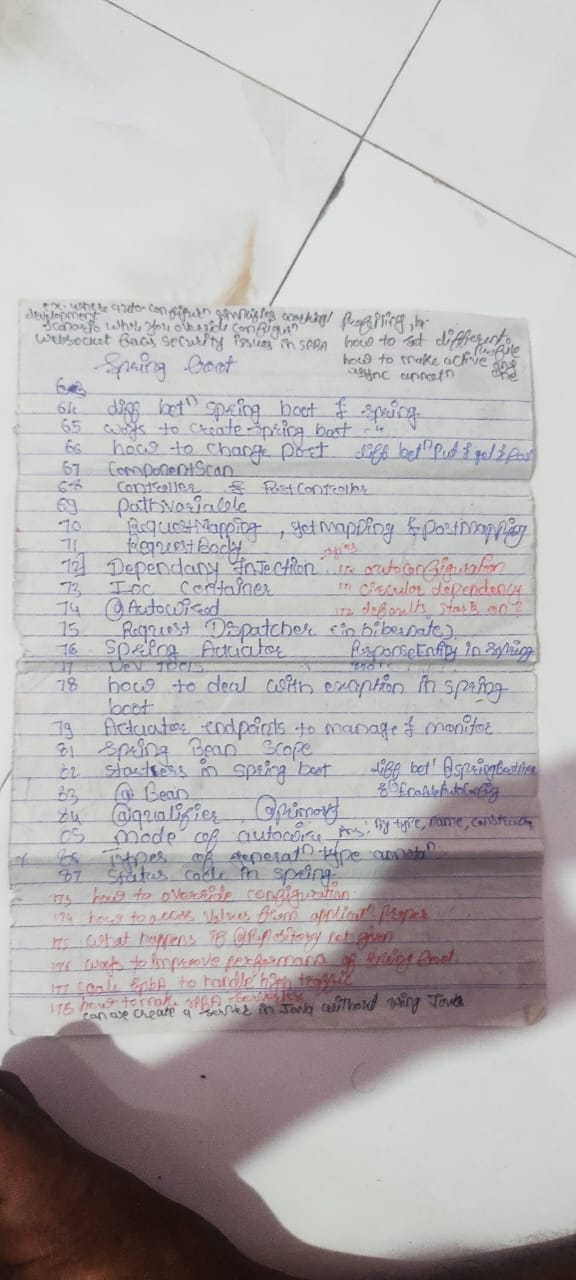 ex. where auto configuratn simplifies working/
development
scenario where you override configurn
Websocket Basics security issues in SPBA
Profiling,
how to set different profile
how to make active and
async annotn one
Spring Boot
64 diff betⁿ spring boot & spring
65 ways to create spring boot
66 how to change port diff betⁿ Put & get & post
67 ComponentScan
68 Controller & RestController
69 Pathvariable
70 RequestMapping, getMapping & postMapping
71 RequestBody
types
72 Dependany InJection 170 autoconfiguration
73 Ioc container 171 circular dependency
74 @Autowired 172 defaults starts on?
75 Request Dispatcher (in hibernate)
76 Spring Actuator ResponseEntity in spring
77 Dev Tools
78 how to deal with exception in spring
boot
79 Actuator endpoints to manage & monitor
81 Spring Bean Scope
82 starters in spring boot diff betⁿ @springbootApp
83 @ Bean & EnableAutoConfig
84 @qualifier, @primary
85 mode of autowire Ans: By type, name, constructor
86 Types of type annotaⁿ
87 Status code in spring
173 how to override configuration
174 how to access values from applicatⁿ proper
175 what happens if @Repository not given
176 ways to improve performanc of Spring Boot
177 scale SpbA to handle high traffic
178 how to make SPBA serverless
can we create a server in Java without using Java